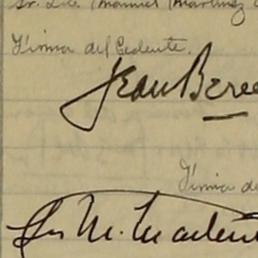 Sr. Lic. Manuel Martinez
Firma del Cedente.
Jean Bere
Firma de
M. Martin